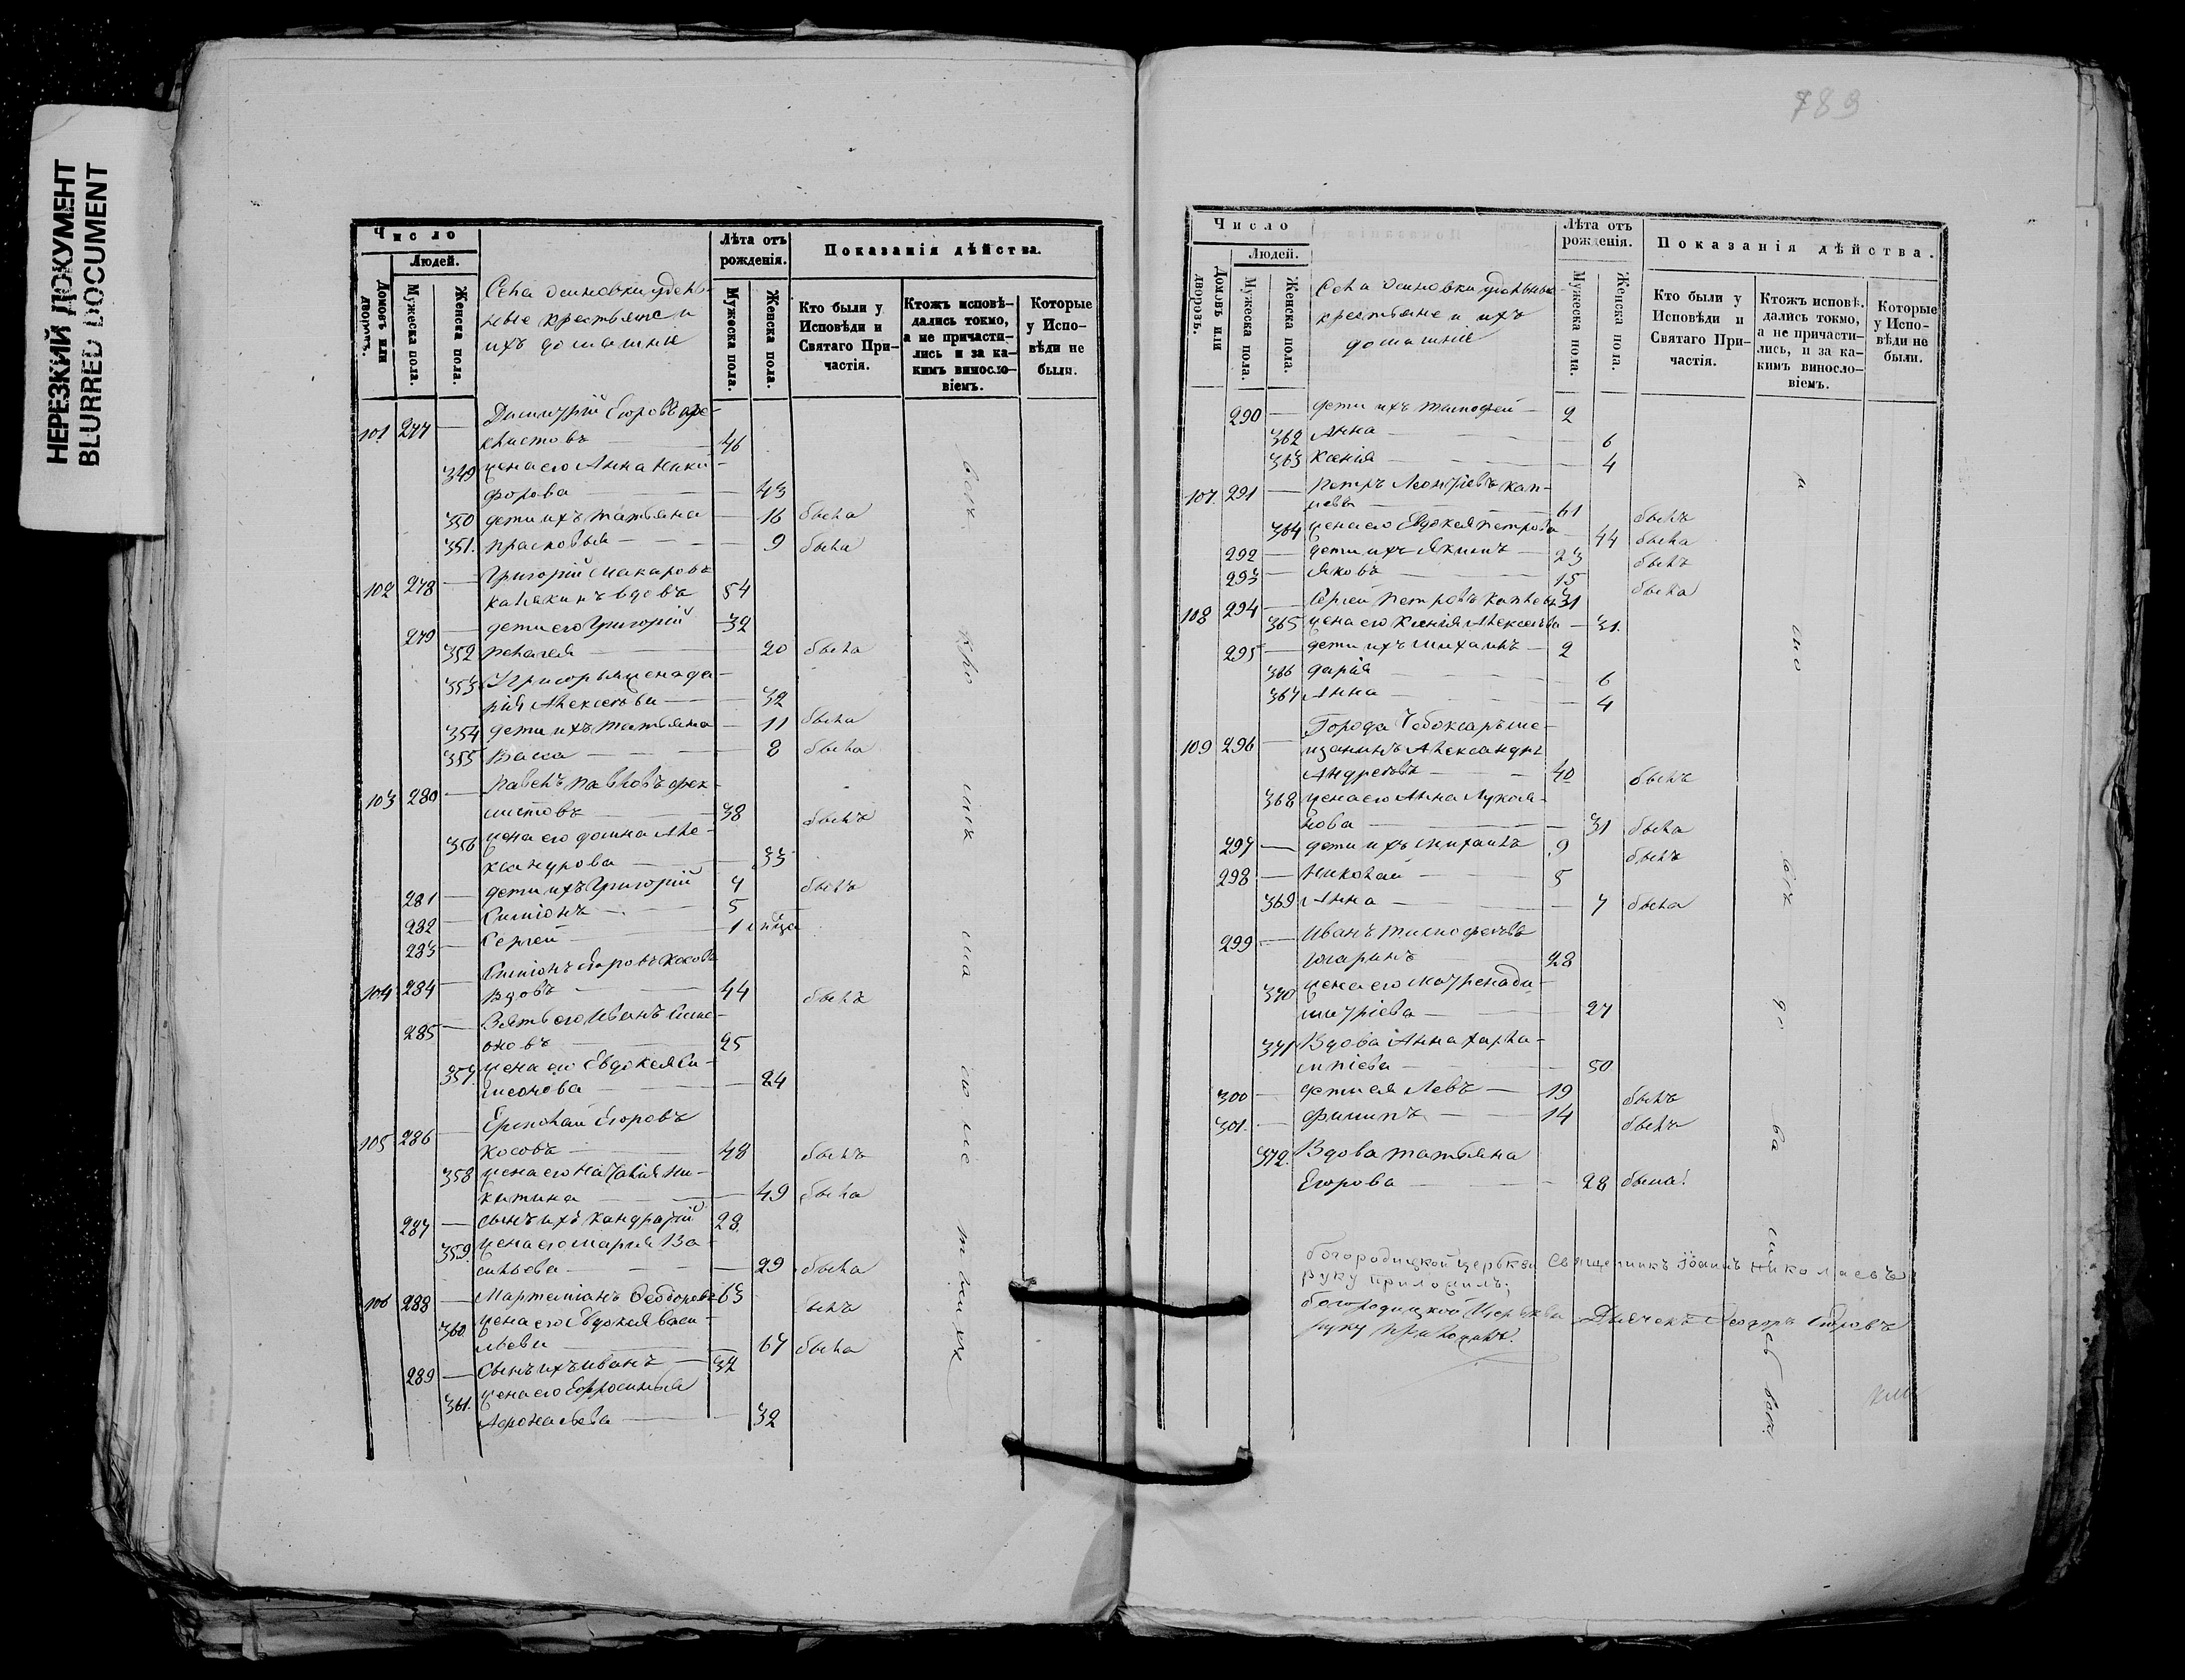 НЕРЕЗКИЙ ДОКУМЕНТ
BLURRED DOCUMENT
Число
Людей.
Домовъ или дворовъ.
Мужеска пола.
Женска пола.
Села Осиновки удѣль-
ные крестьяне и
ихъ домашніе
Лѣта отъ рожденія.
Мужеска пола.
Женска пола.
Показанія дѣйства.
Кто были у Исповѣди и Святаго При-частія.
Ктожъ исповѣ-дались токмо, а не причасти-лись и за ка-кимъ винословіемъ.
Которые у Испо-вѣди не были.
101 277 — Димитрій Егоровъ
46
349 жена его Анна Ники-
форова — 43
350 дети ихъ Татьяна — 16 была
351. Прасковья — 9 была
102 278 — Григорій Макаровъ
вдовъ 54
279 — дети его Григорій 32
352 Пелагея — 20 была
353 Григорья жена Да-
рія Алексеева — 32
354 дети ихъ Татьяна — 11 была
355 Васса — 8 была
103 280 — Павелъ Павловъ
38 былъ
356 жена его Домна Але-
ксандрова — 33
281 — дети ихъ Григорій 7 былъ
282 — Симіонъ — 5
283 — Сергей — 1
104 284 — Симіонъ Егоровъ Косовъ
вдовъ — 44 былъ
285 — Зять его Иванъ Симе-
оновъ — 25
357. жена его Евдокея Си-
меонова — 24
105 286 — Ермолай Егоровъ
Косовъ — 48 былъ
358 жена его Наталія Ни-
китина — 49 была
287 — сынъ ихъ Кандратій 28.
359. жена его Марія Ва-
сильева — 29 была
106 288 — Мартеміанъ Феодоровъ 63 былъ
360. жена его Евдокея Васи-
льева — 67 была
289 — Сынъ ихъ Иванъ — 34
361. жена его Ефросинья
— 32
789
Число
Людей.
Домовъ или дворовъ.
Мужеска пола.
Женска пола.
Села Осиновки удѣльные
крестьяне и ихъ
домашніе
Лѣта отъ рожденія.
Мужеска пола.
Женска пола.
Показанія дѣйства.
Кто были у Исповѣди и Святаго При-частія.
Ктожъ исповѣ-дались токмо, а не причасти-лись, и за ка-кимъ винословіемъ.
Которые у Испо-вѣди не были.
290 — дети ихъ Тимофей — 2
362 Анна — 6
363 Ксенія — 4
107. 291 — Петръ Леонтіевъ
61 былъ
364 жена его Евдокея Петрова 44 была
292 — дети ихъ Якимъ — 23 былъ
293 — Яковъ — 15 былъ
108 294 — Сергей Петровъ 31
365 жена его Ксенія Алексеева — 31.
295 — дети ихъ Михаилъ — 2
366 Дарія — 6
367 Анна — 4
109 296 — Города Чебоксаръ ме-
щанинъ Александръ
Андреевъ — 40 былъ
368 жена его Анна Лукоя-
нова — 31 была
297 — дети ихъ Михаилъ 9 былъ
298 — Николай — 5
369 Анна — 7 была
299 — Иванъ Тимофеевъ
28
370 жена его Матрена Ди-
митріева — 27
371 Вдова Анна Харла-
мпіева — 50
300 — дети ея Левъ — 19 былъ
301. — Филипъ — 14 былъ
372. Вдова Татьяна
Егорова — 28 была
богородицкой церькви священникъ Іоаннъ Николаевъ
руку приложилъ;
богородицкой Церькви Дьячекъ
руку приложилъ.